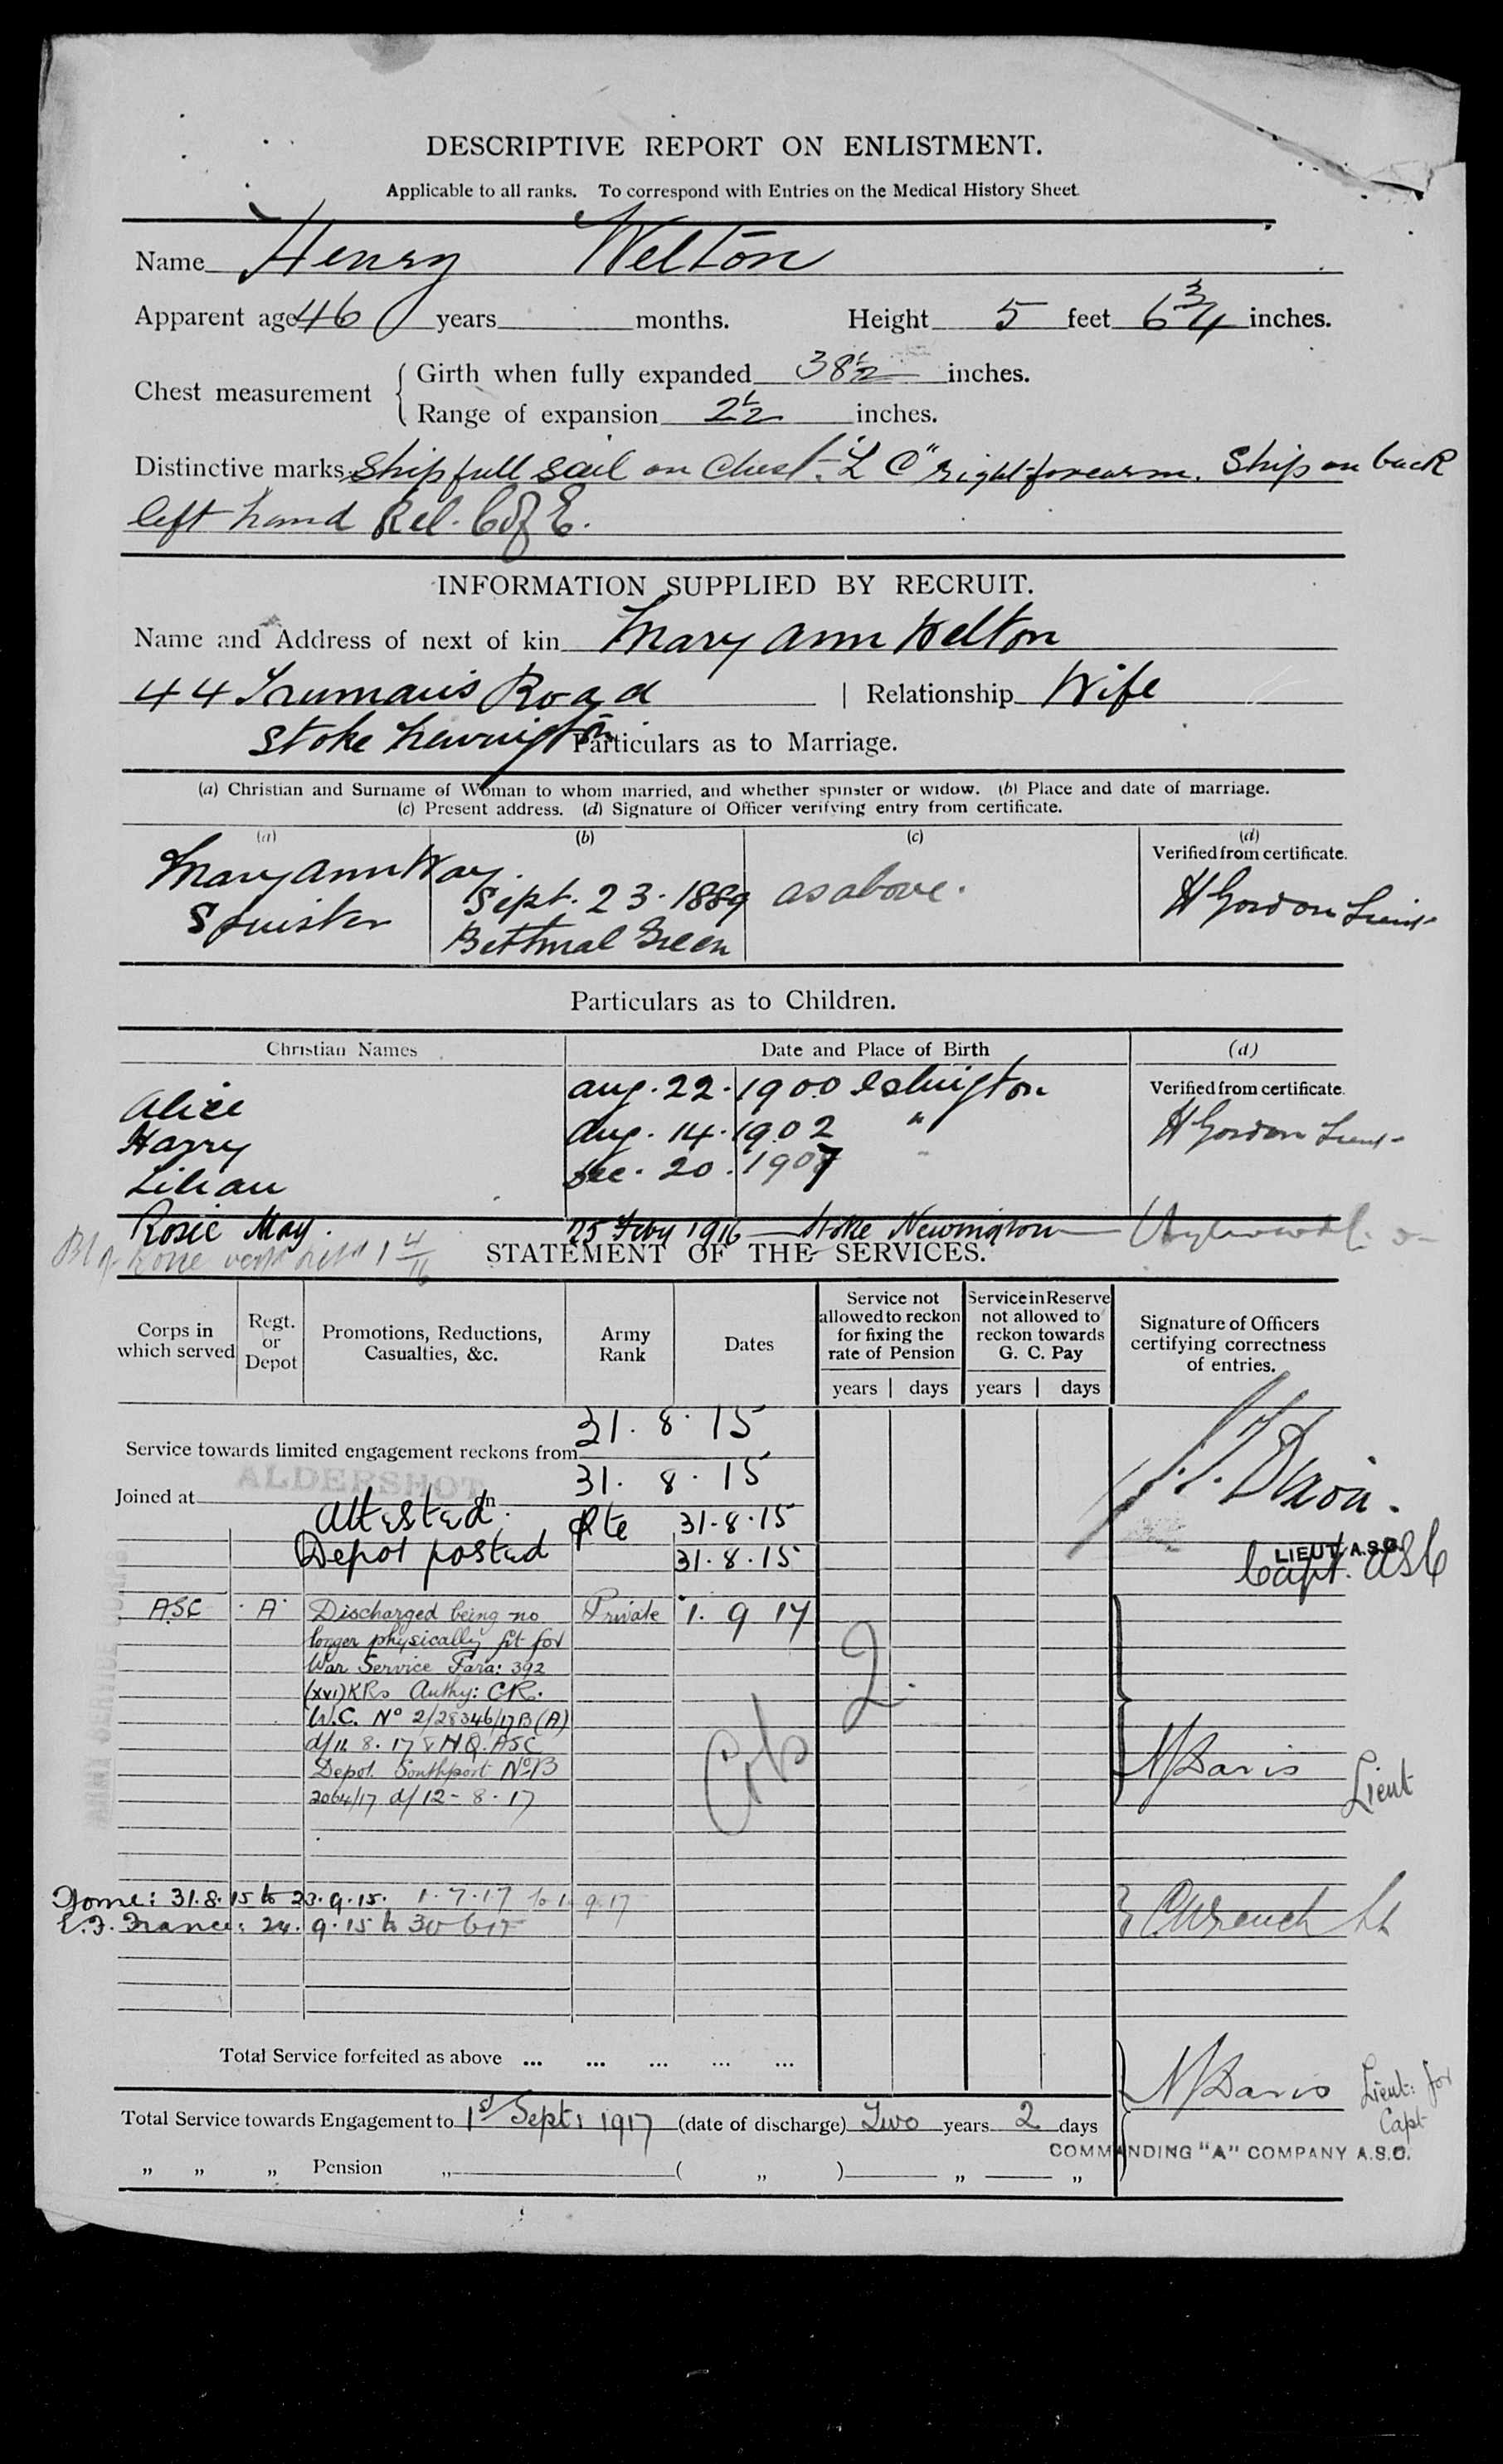 DESCRIPTIVE REPORT ON ENLISTMENT.
Applicable to all ranks. To correspond with Entries on the Medical History Sheet
Name Henry Welton
Apparent age 46 years months. Height 5 feet 6 3/4 inches.
Chest measurement { Girth when fully expanded 38 1/2 inches.
Range of expansion 2 1/2 inches.
Distinctive marks Ship full sail on chest. "L C" right forearm. Ship on back
left hand Rel. C of E.
INFORMATION SUPPLIED BY RECRUIT.
Name and Address of next of kin Mary Ann Welton
44 Truman's Road | Relationship Wife
Stoke Newington
Particulars as to Marriage.
(a) Christian and Surname of Woman to whom married, and whether spinster or widow. (b) Place and date of marriage.
(c) Present address. (d) Signature of Officer verifying entry from certificate.
(a) (b) (c) (d)
Verified from certificate.
Mary Ann Way. Sept. 23. 1889 as above. H Gordon Lieut
Spinster Bethnal Green
Particulars as to Children.
Christian Names Date and Place of Birth (d)
Verified from certificate.
Alice Aug. 22. 1900 Islington
Harry Aug. 14. 1902 " H Gordon Lieut
Lilian Dec. 20. 1907 "
Rosie May. 25 Feby 1916 Stoke Newington
STATEMENT OF THE SERVICES.
Corps in which served Regt. or Depot Promotions, Reductions, Casualties, &c. Army Rank Dates Service not allowed to reckon for fixing the rate of Pension Service in Reserve not allowed to reckon towards G. C. Pay Signature of Officers certifying correctness of entries.
years days years days
Service towards limited engagement reckons from 31. 8. 15
Joined at ALDERSHOT on 31. 8. 15
Attested. Pte 31.8.15
Depot posted 31.8.15
LIEUT. A.S.C.
Capt. ASC
ASC A Discharged being no Private 1. 9 17
longer physically fit for
War Service Para: 392
(xvi) KRs Authy: CR.
W.C. No 2/28346/17B (A)
d/11 8. 17 & HQ. ASC
Depot. Southport No B
2064/17 d/12-8-17
2.
N Davis Lieut
Home: 31.8.15 to 23.9.15. 1.7.17 to 1.9.17
E.F. France: 24.9.15 to 30 6 17
Total Service forfeited as above ... ... ... ... ...
N Davis Lieut: for
Capt
Total Service towards Engagement to 1st Sept: 1917 (date of discharge) Two years 2 days
COMMANDING "A" COMPANY A.S.C.
" " " Pension " ( " ) " "